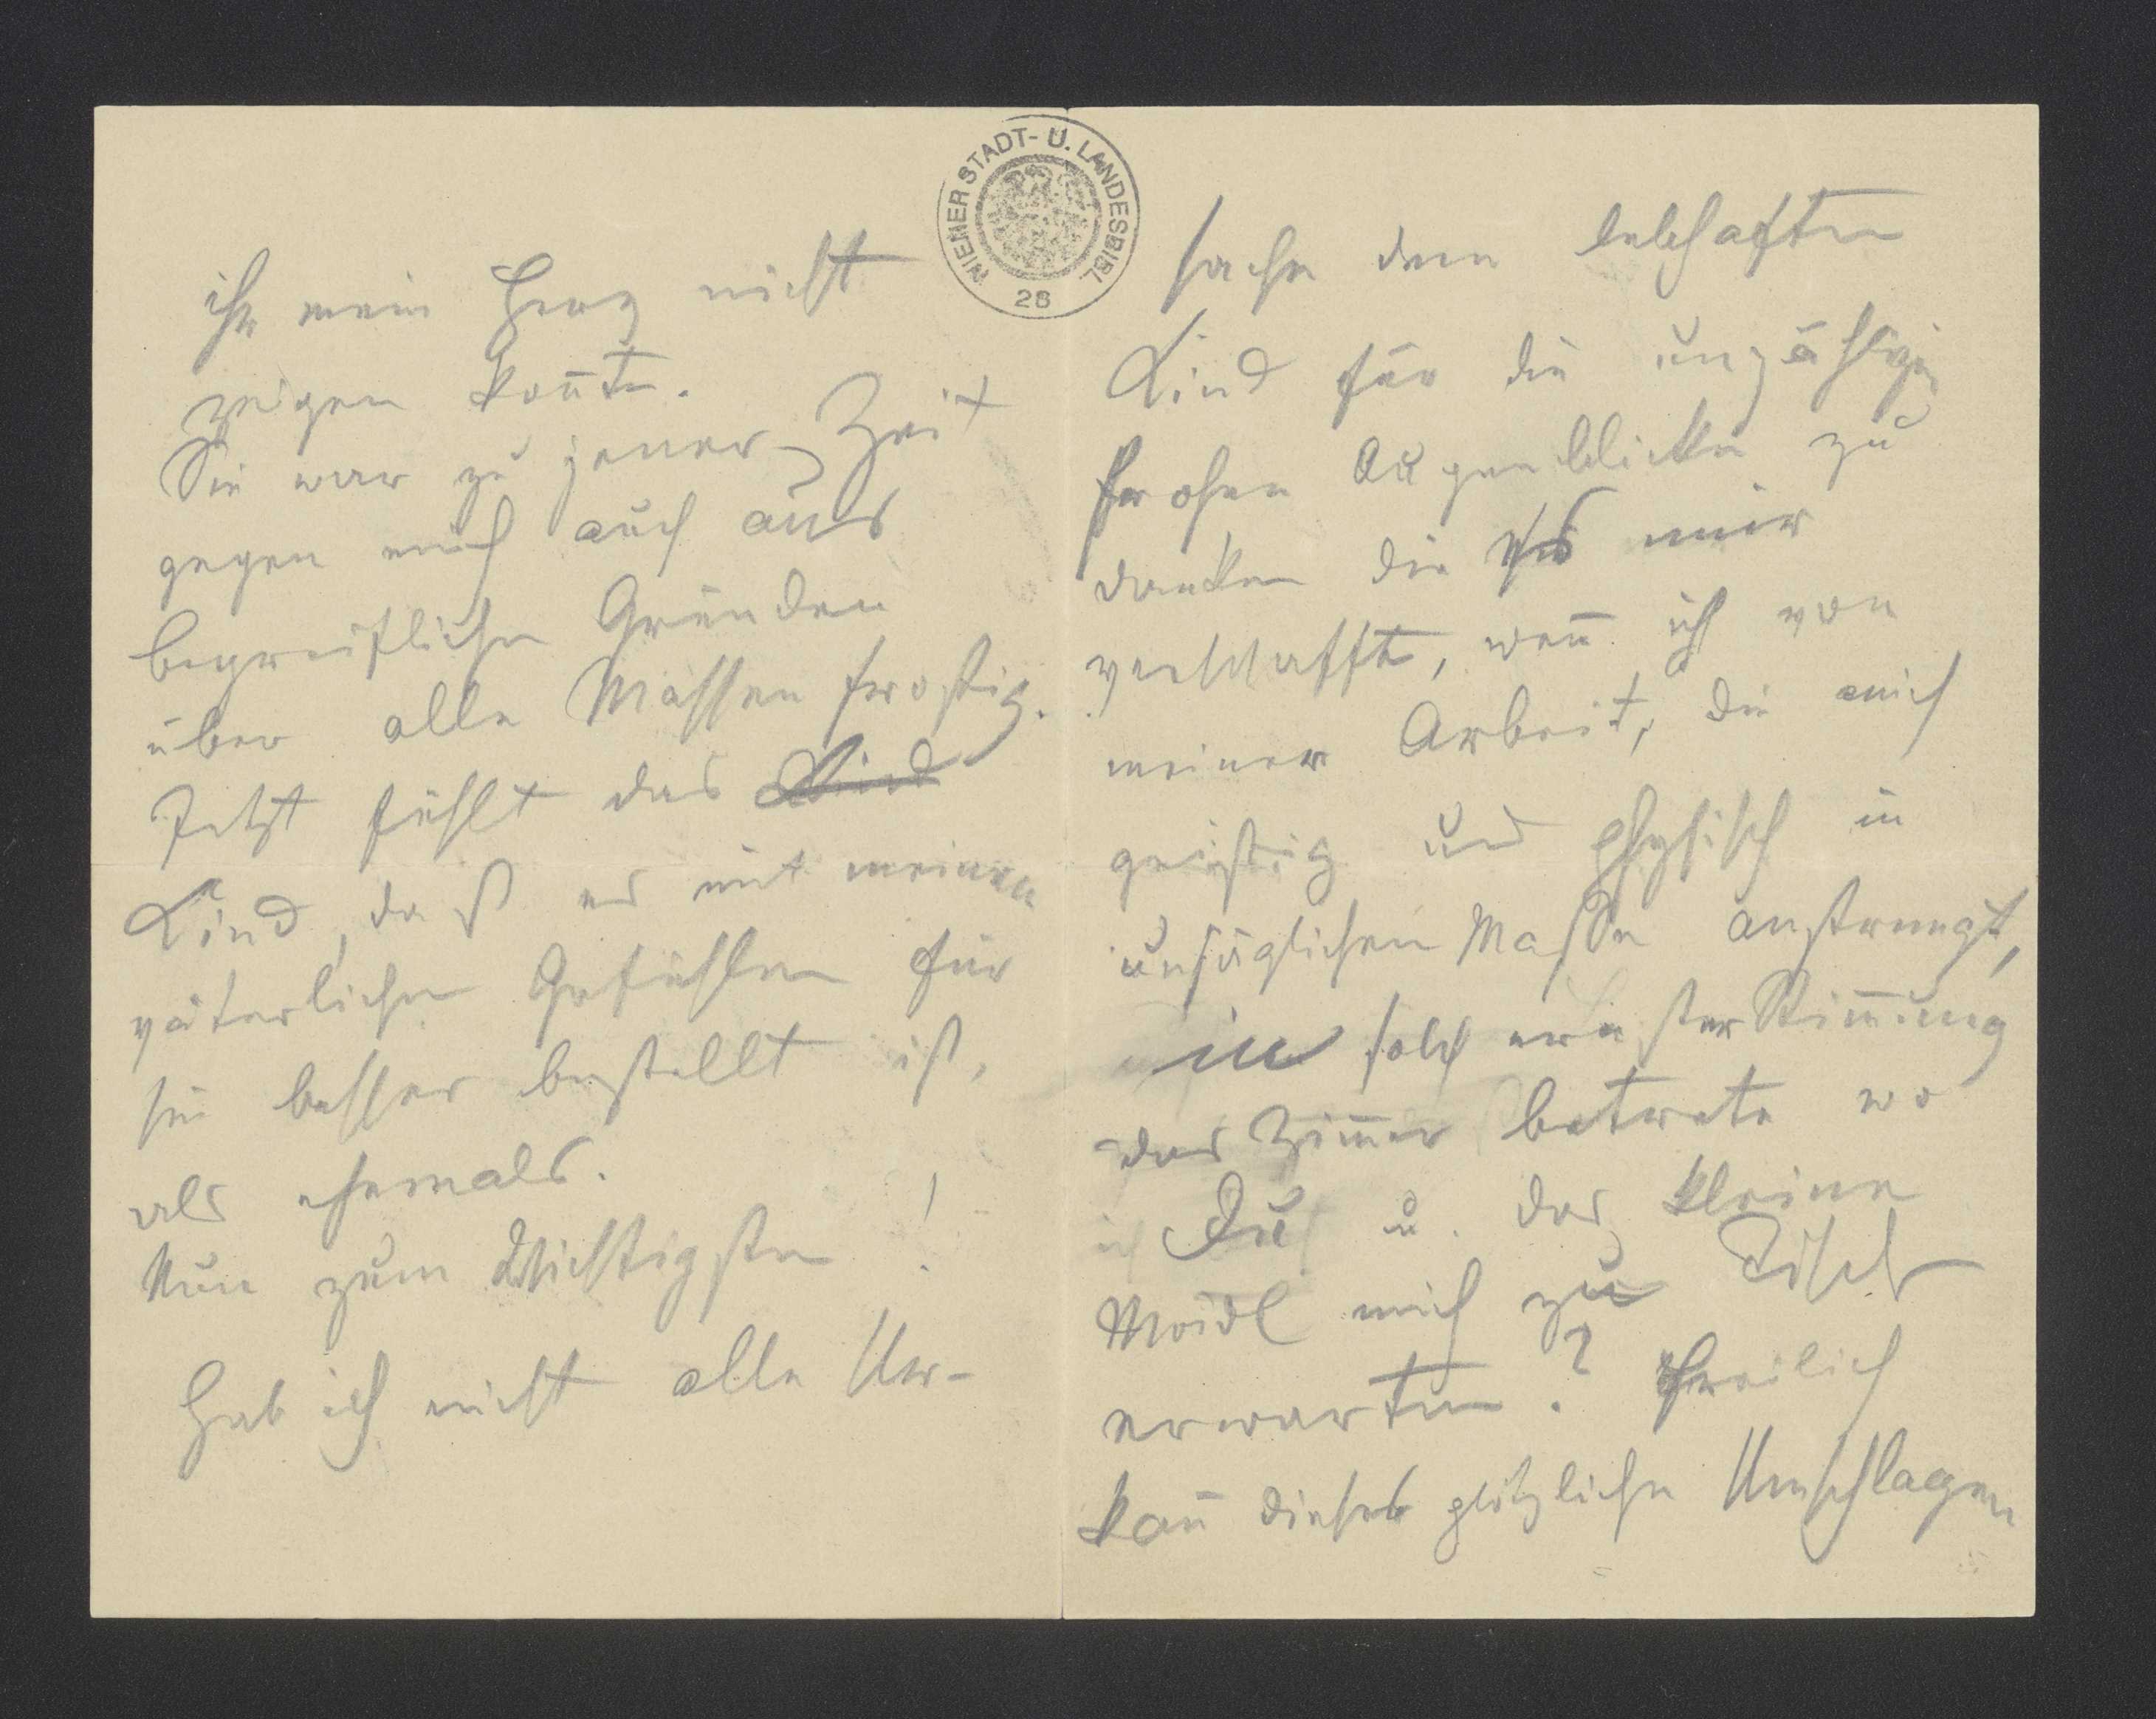 WIENER STADT- U. LANDESBIBL.
28
ihr mein Herz nicht
zeigen kon̄te.
Sie war zu jener Zeit
gegen mich auch aus
begreiflichen Gründen
über alle Massen frostig.
Jetzt fühlt das Kind
Kind, daß es mit meinen
väterlichen Gefühlen für
sie besser bestellt ist,
als ehemals.
Nun zum Wichtigsten!
Hab ich nicht alle Ur-
sache dem lebhaften
Kind für die unzähligen
frohen Augenblicke zu
danken die es mir
verschafft, wen̄ ich von
meiner Arbeit, die mich
geistig und physisch in
unsäglichen Maße anstrengt,
in solch ernster Stim̄ung
das Zim̄er betrete wo
Du u. das kleine
Moidl mich zu Tisch
erwarten? Freilich
kan̄ dieses plötzliche Umschlagen